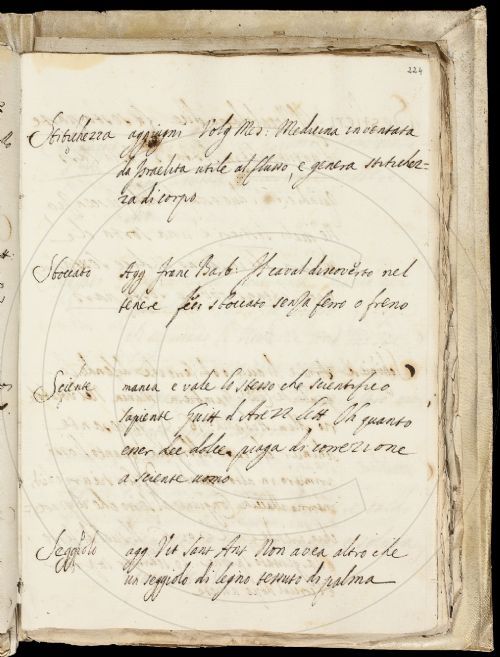 224
Stitichezza aggiugni Volg Mes: Medicina inventata
da Israelita utile al flusso, e genera stitichez-
za di corpo
Sboccato Agg Franc Barb: Il caval di noverto nel
tenere feci sboccato senza ferro o freno
Sciente manca e vale lo stesso che scientifico
sapiente Guitt d'Arez lett Oh quanto
esser dee dolce piaga di correzione
a sciente uomo
Seggiolo agg Vit Sant Ant Non avea altro che
un seggiolo di legno tessuto di palma